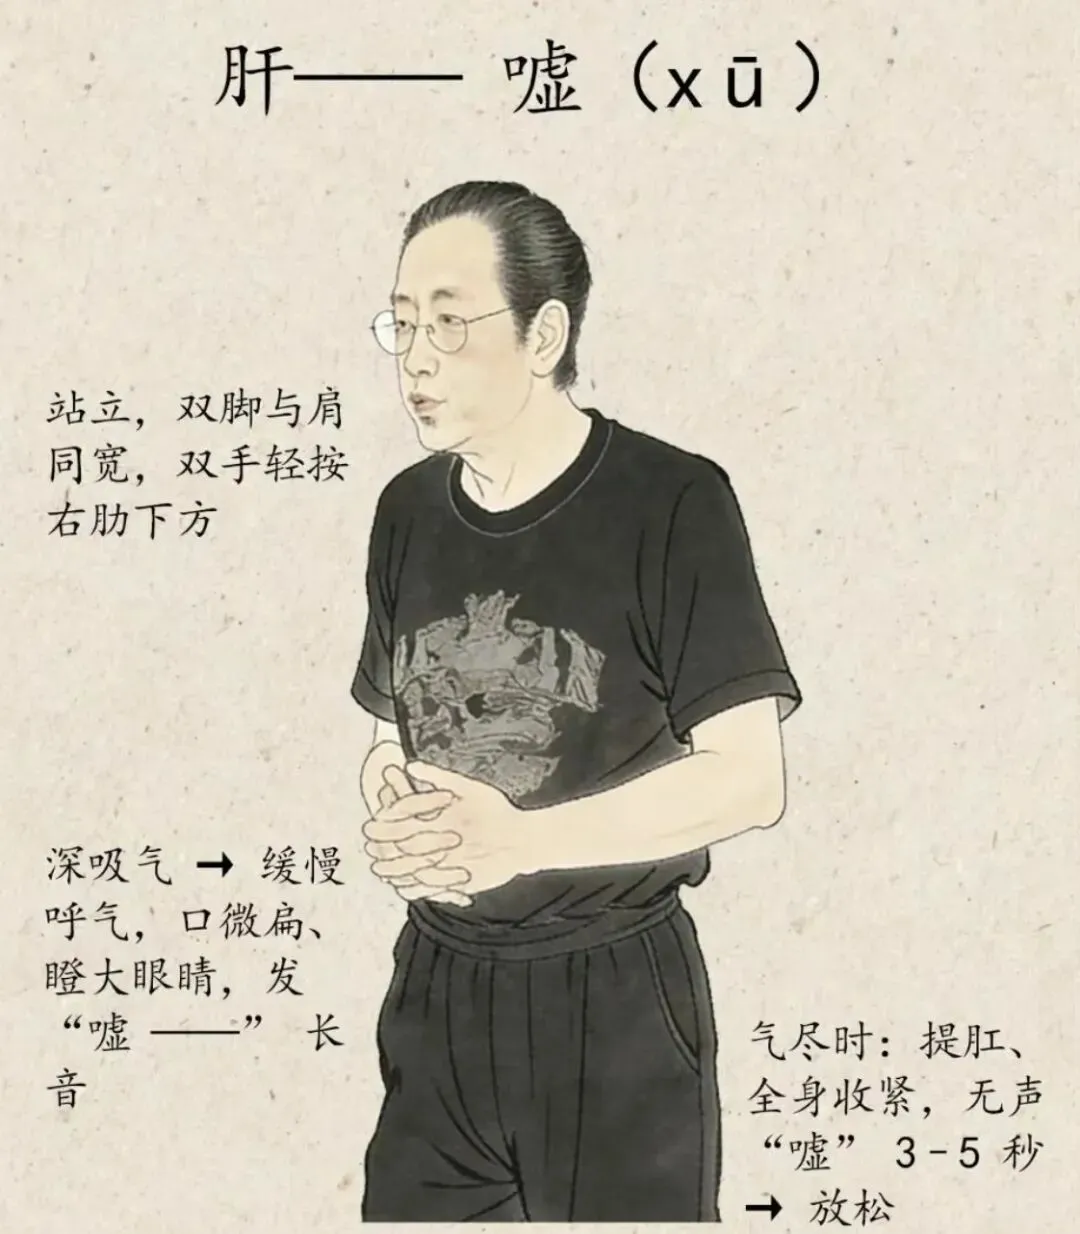 肝—— 嘘（xū）
站立，双脚与肩
同宽，双手轻按
右肋下方
深吸气 → 缓慢
呼气，口微扁、
瞪大眼睛，发
“嘘 ——” 长
音
气尽时：提肛、
全身收紧，无声
“嘘” 3-5 秒
→ 放松